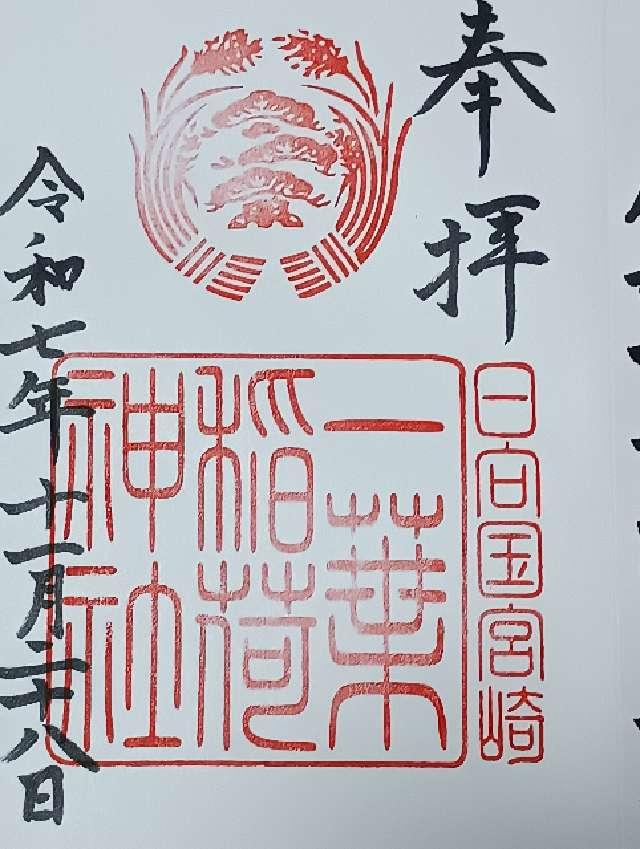 奉拝
日向国宮崎
一葉
稲荷
神社
令和七年十一月二十八日